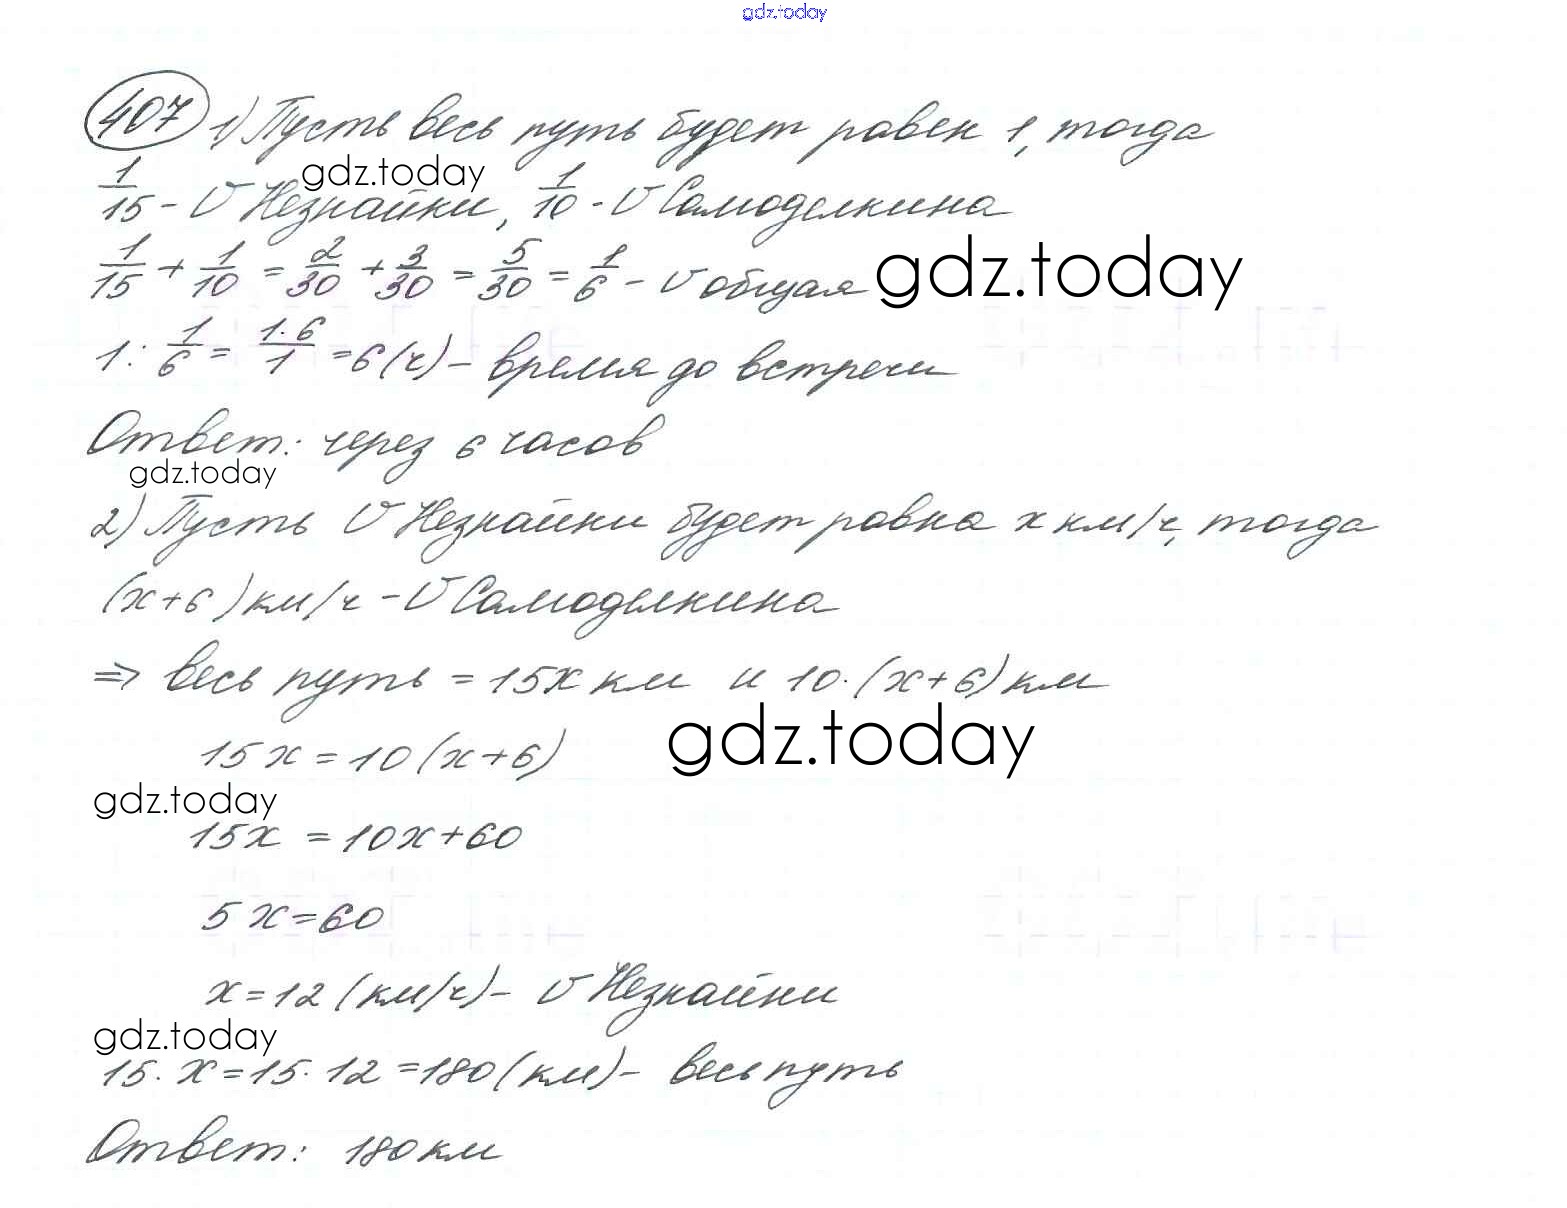 gdz.today
407 1) Пусть весь путь будет равен 1, тогда
gdz.today
1/15 - V Незнайки, 1/10 - V Самоделкина
1/15 + 1/10 = 2/30 + 3/30 = 5/30 = 1/6 - V общая
gdz.today
1 : 1/6 = 1·6/1 = 6 (ч) - время до встречи
Ответ: через 6 часов
gdz.today
2) Пусть V Незнайки будет равна x км/ч, тогда
(x+6) км/ч - V Самоделкина
⇒ весь путь = 15x км и 10·(x+6) км
gdz.today
15x = 10(x+6)
gdz.today
15x = 10x+60
5x=60
x=12 (км/ч) - V Незнайки
gdz.today
15·x=15·12=180(км) - весь путь
Ответ: 180 км